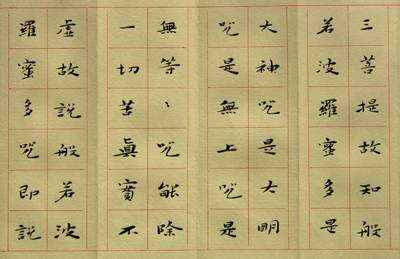 三菩提故知般
若波羅蜜多是
大神咒是大明
咒是無上咒是
無等〻咒能除
一切苦真實不
虛故說般若波
羅蜜多咒即說